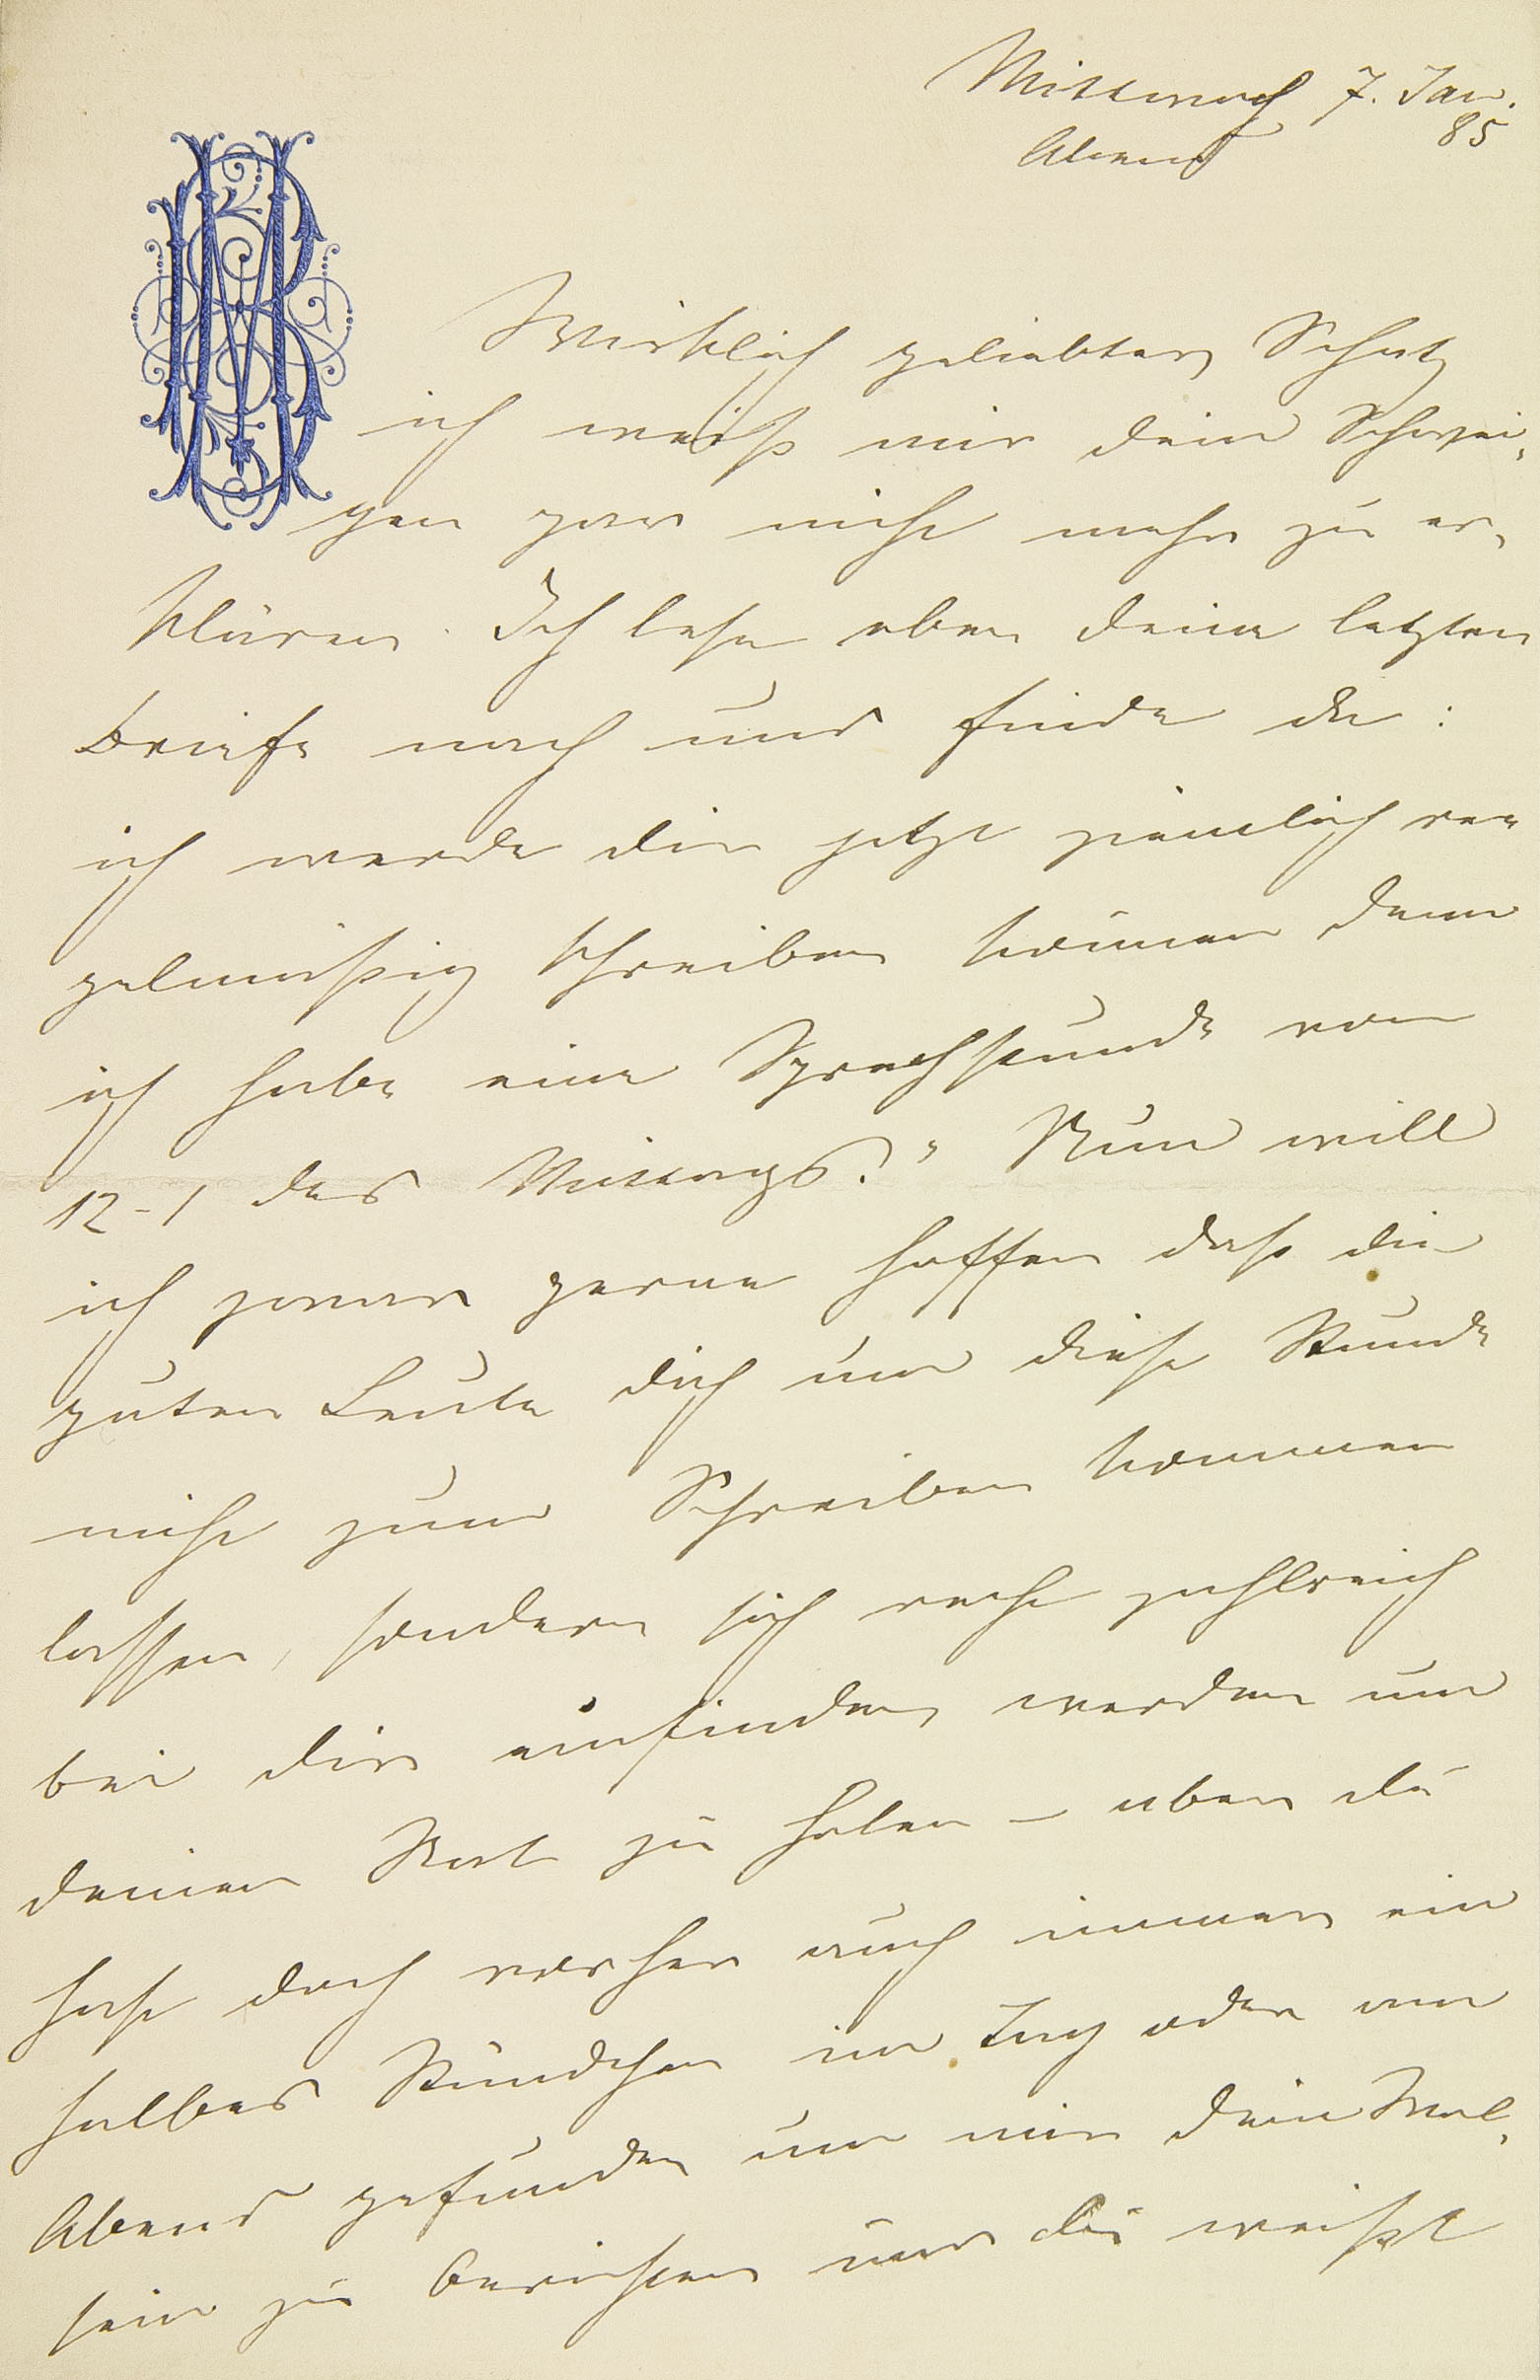 Mittwoch 7. Jan.
85
Abend
Wirklich geliebter Schatz
ich weiß mir dein Schwei-
gen gar nicht mehr zu er-
klären. Ich lese eben deine letzten
Briefe nach und finde da:
ich werde dir jetzt ziemlich re-
gelmäßig schreiben können denn
ich habe eine Sprechstunde von
12-1 des Mittags." Nun will
ich zwar gerne hoffen daß die
guten Leute dich um diese Stunde
nicht zum Schreiben kommen
lassen, sondern sich recht zahlreich
bei dir einfinden werden um
deinen Rat zu holen – aber du
hast doch vorher auch immer ein
halbes Stündchen im Tag oder am
Abend gefunden um mir dein Wol-
sein zu berichten und du weißt